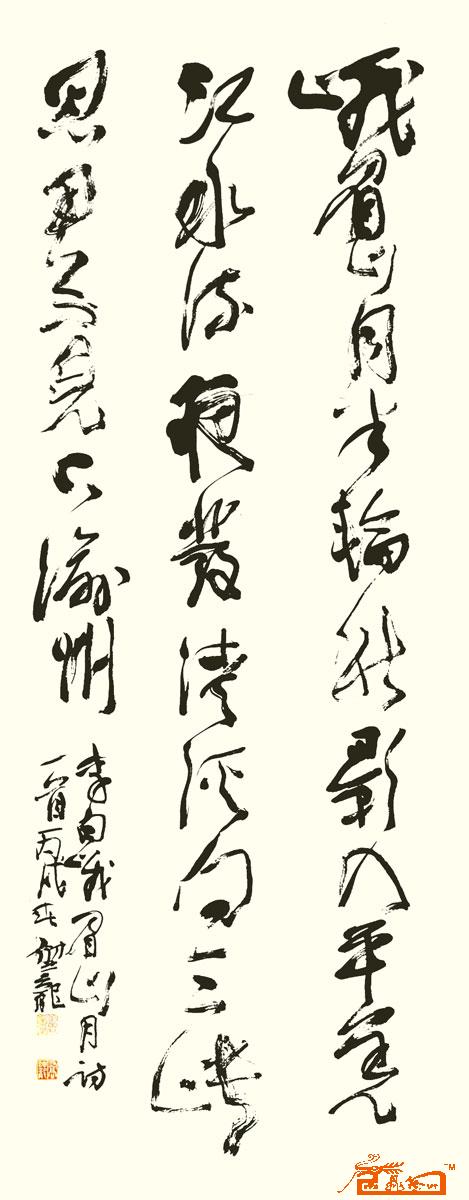 峨眉山月半輪秋影入平羌
江水流夜發清溪向三峽
思君不見下渝州
李白峨眉山月詩
一首丙戌春
TM